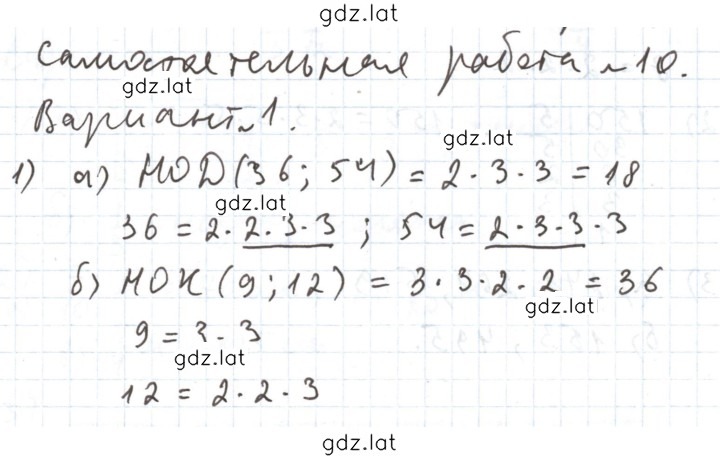 gdz.lat
Самостоятельная работа №10.
gdz.lat
Вариант №1.
gdz.lat
1) а) НОД(36; 54) = 2·3·3 = 18
gdz.lat
36 = 2·2·3·3 ; 54 = 2·3·3·3
б) НОК (9;12) = 3·3·2·2 = 36
gdz.lat
9 = 3·3
gdz.lat
12 = 2·2·3
gdz.lat